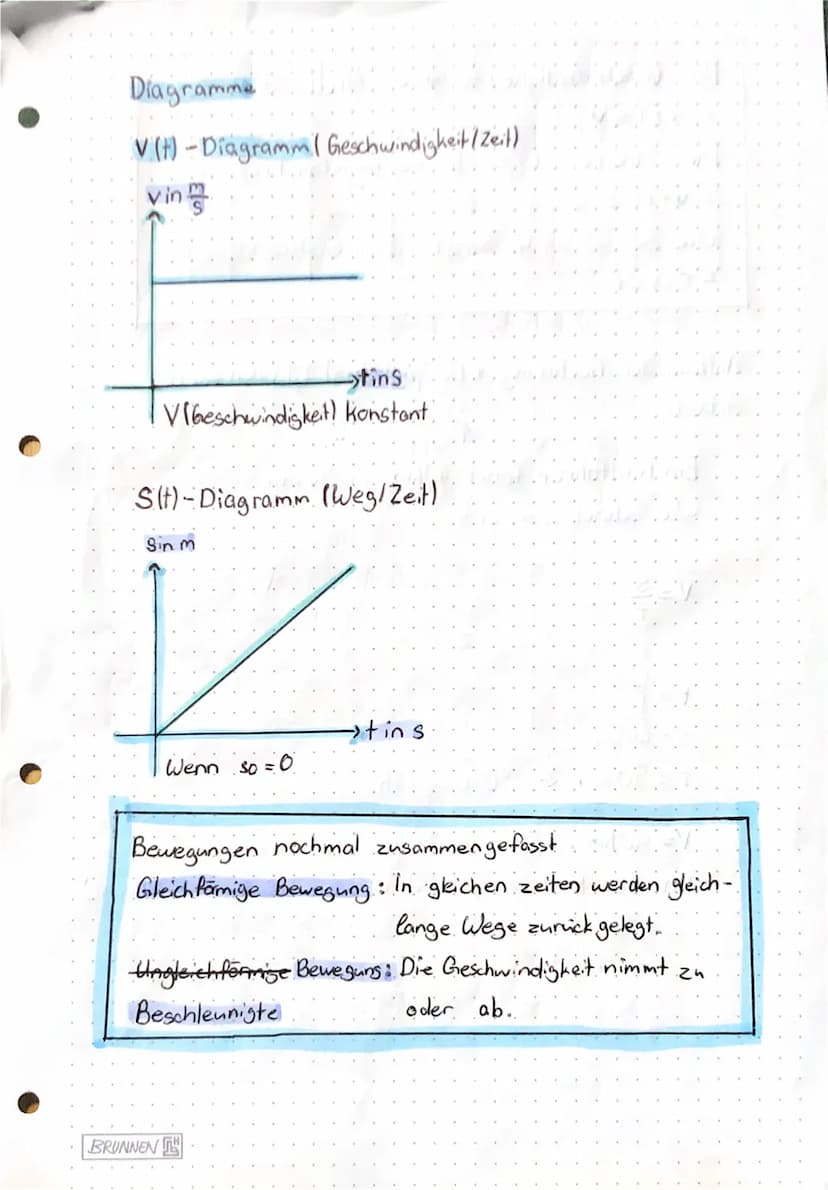 Diagramme
V(t) - Diagramm (Geschwindigkeit/Zeit)
v in m/s
t in s
V (Geschwindigkeit) Konstant
S(t) - Diagramm (Weg/Zeit)
S in m
t in s
Wenn so = 0
Bewegungen nochmal zusammengefasst
Gleichfömige Bewegung: In gleichen zeiten werden gleich-
lange Wege zurück gelegt.
Ungleichförmige Bewegung: Die Geschwindigkeit nimmt zu
Beschleunigte oder ab.
BRUNNEN